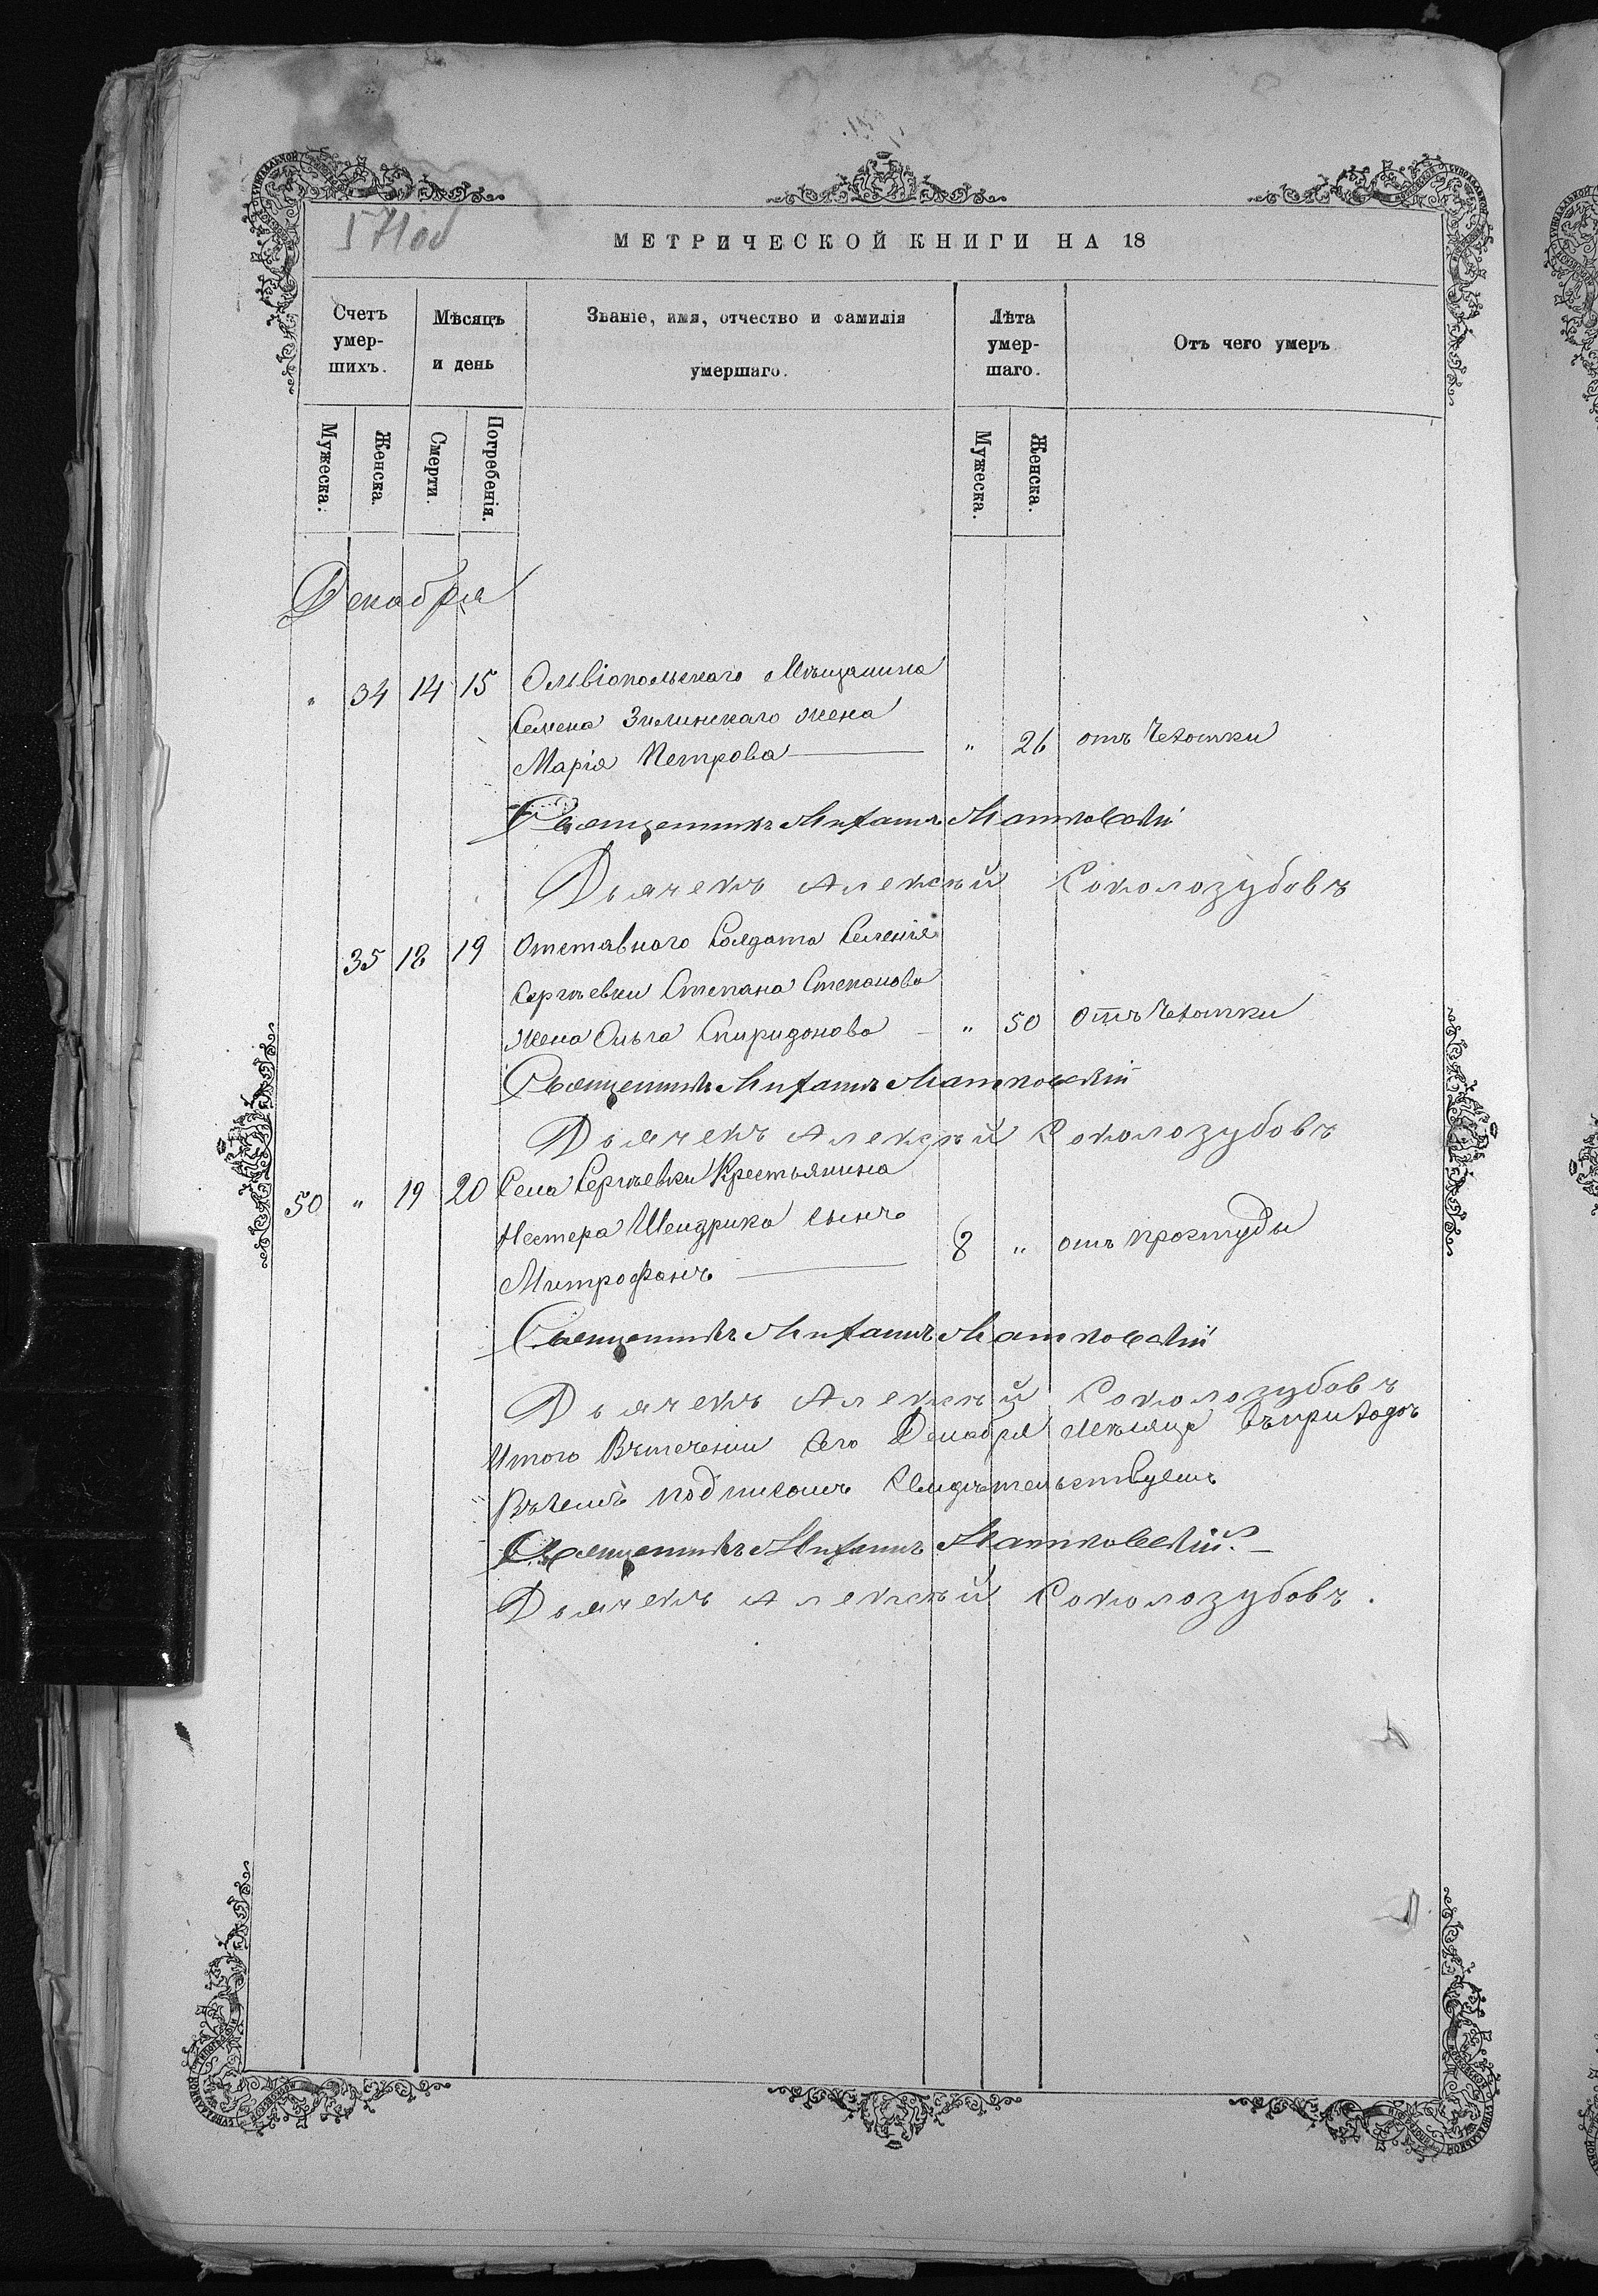 571об
МЕТРИЧЕСКОЙ КНИГИ НА 18
Счетъ умер-шихъ.
Мѣсяцъ и день
Званіе, имя, отчество и фамилія умершаго.
Лѣта умер-шаго.
Отъ чего умеръ
Мужеска.
Женска.
Смерти.
Погребенія.
Мужеска.
Женска.
Декабря
" 34 14 15 Ольвіопольскаго Мѣщанина
Семена Зилинскаго жена
Марія Петрова — " 26 отъ Чехотки
Священникъ Михаилъ Матковскій
Дьячекъ Алексѣй Соколозубовъ
35 18 19 Отставного Солдата Селенія
Сергѣевки Степана Степанова
жена Ольга Спиридонова — " 50 Отъ Чехотки
Священникъ Михаилъ Матковскій
Дьячекъ Алексѣй Соколозубовъ
50 " 19 20 Села Сергѣевки Крестьянина
Нестера Шендрика сынъ
Митрофанъ — 8 " отъ простуды
Священникъ Михаилъ Матковскій
Дьячекъ Алексѣй Соколозубовъ
Итого Втеченіи Сего Декабря мѣсяца въ приходѣ
Въ чемъ подписомъ Свидѣтельствуемъ
Священникъ Михаилъ Матковскій. —
Дьячекъ Алексѣй Соколозубовъ.